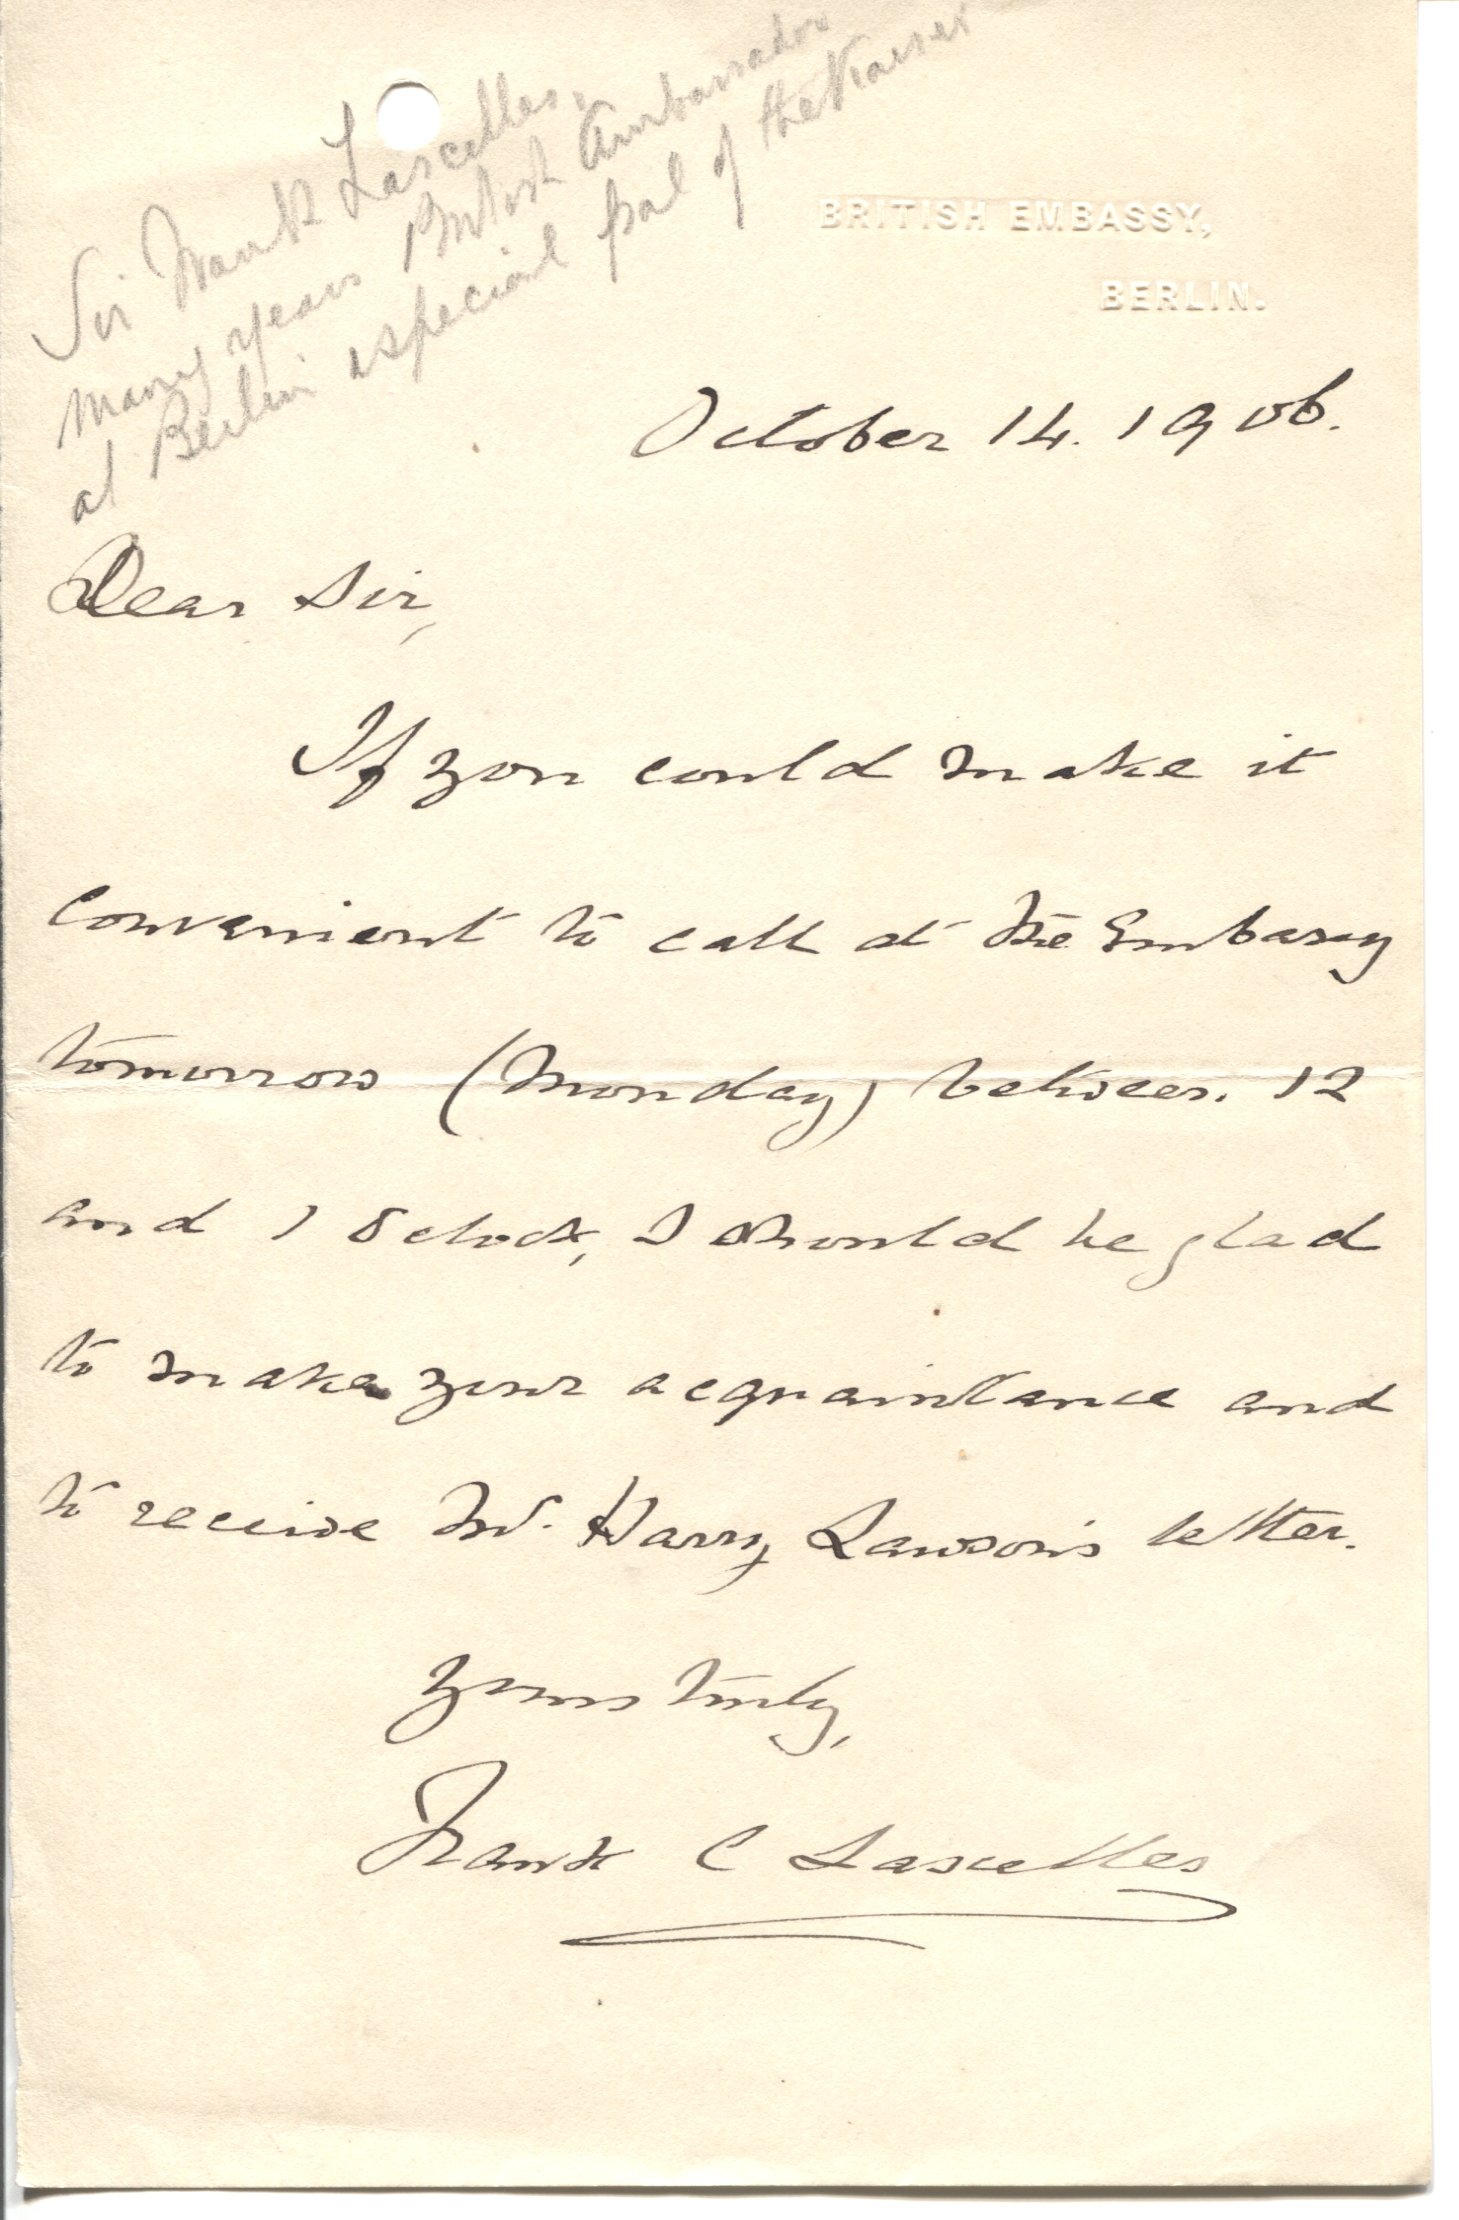 Sir Frank Lascelles,
many years British Ambassador
at Berlin especial pal of the Kaiser
BRITISH EMBASSY,
BERLIN.
October 14. 1906.
Dear Sir,
If you could make it
convenient to call at the Embassy
tomorrow (Monday) between 12
and 1 o'clock, I should be glad
to make your acquaintance and
to receive Mr. Harry Lawson's letter.
Yours truly,
Frank C Lascelles